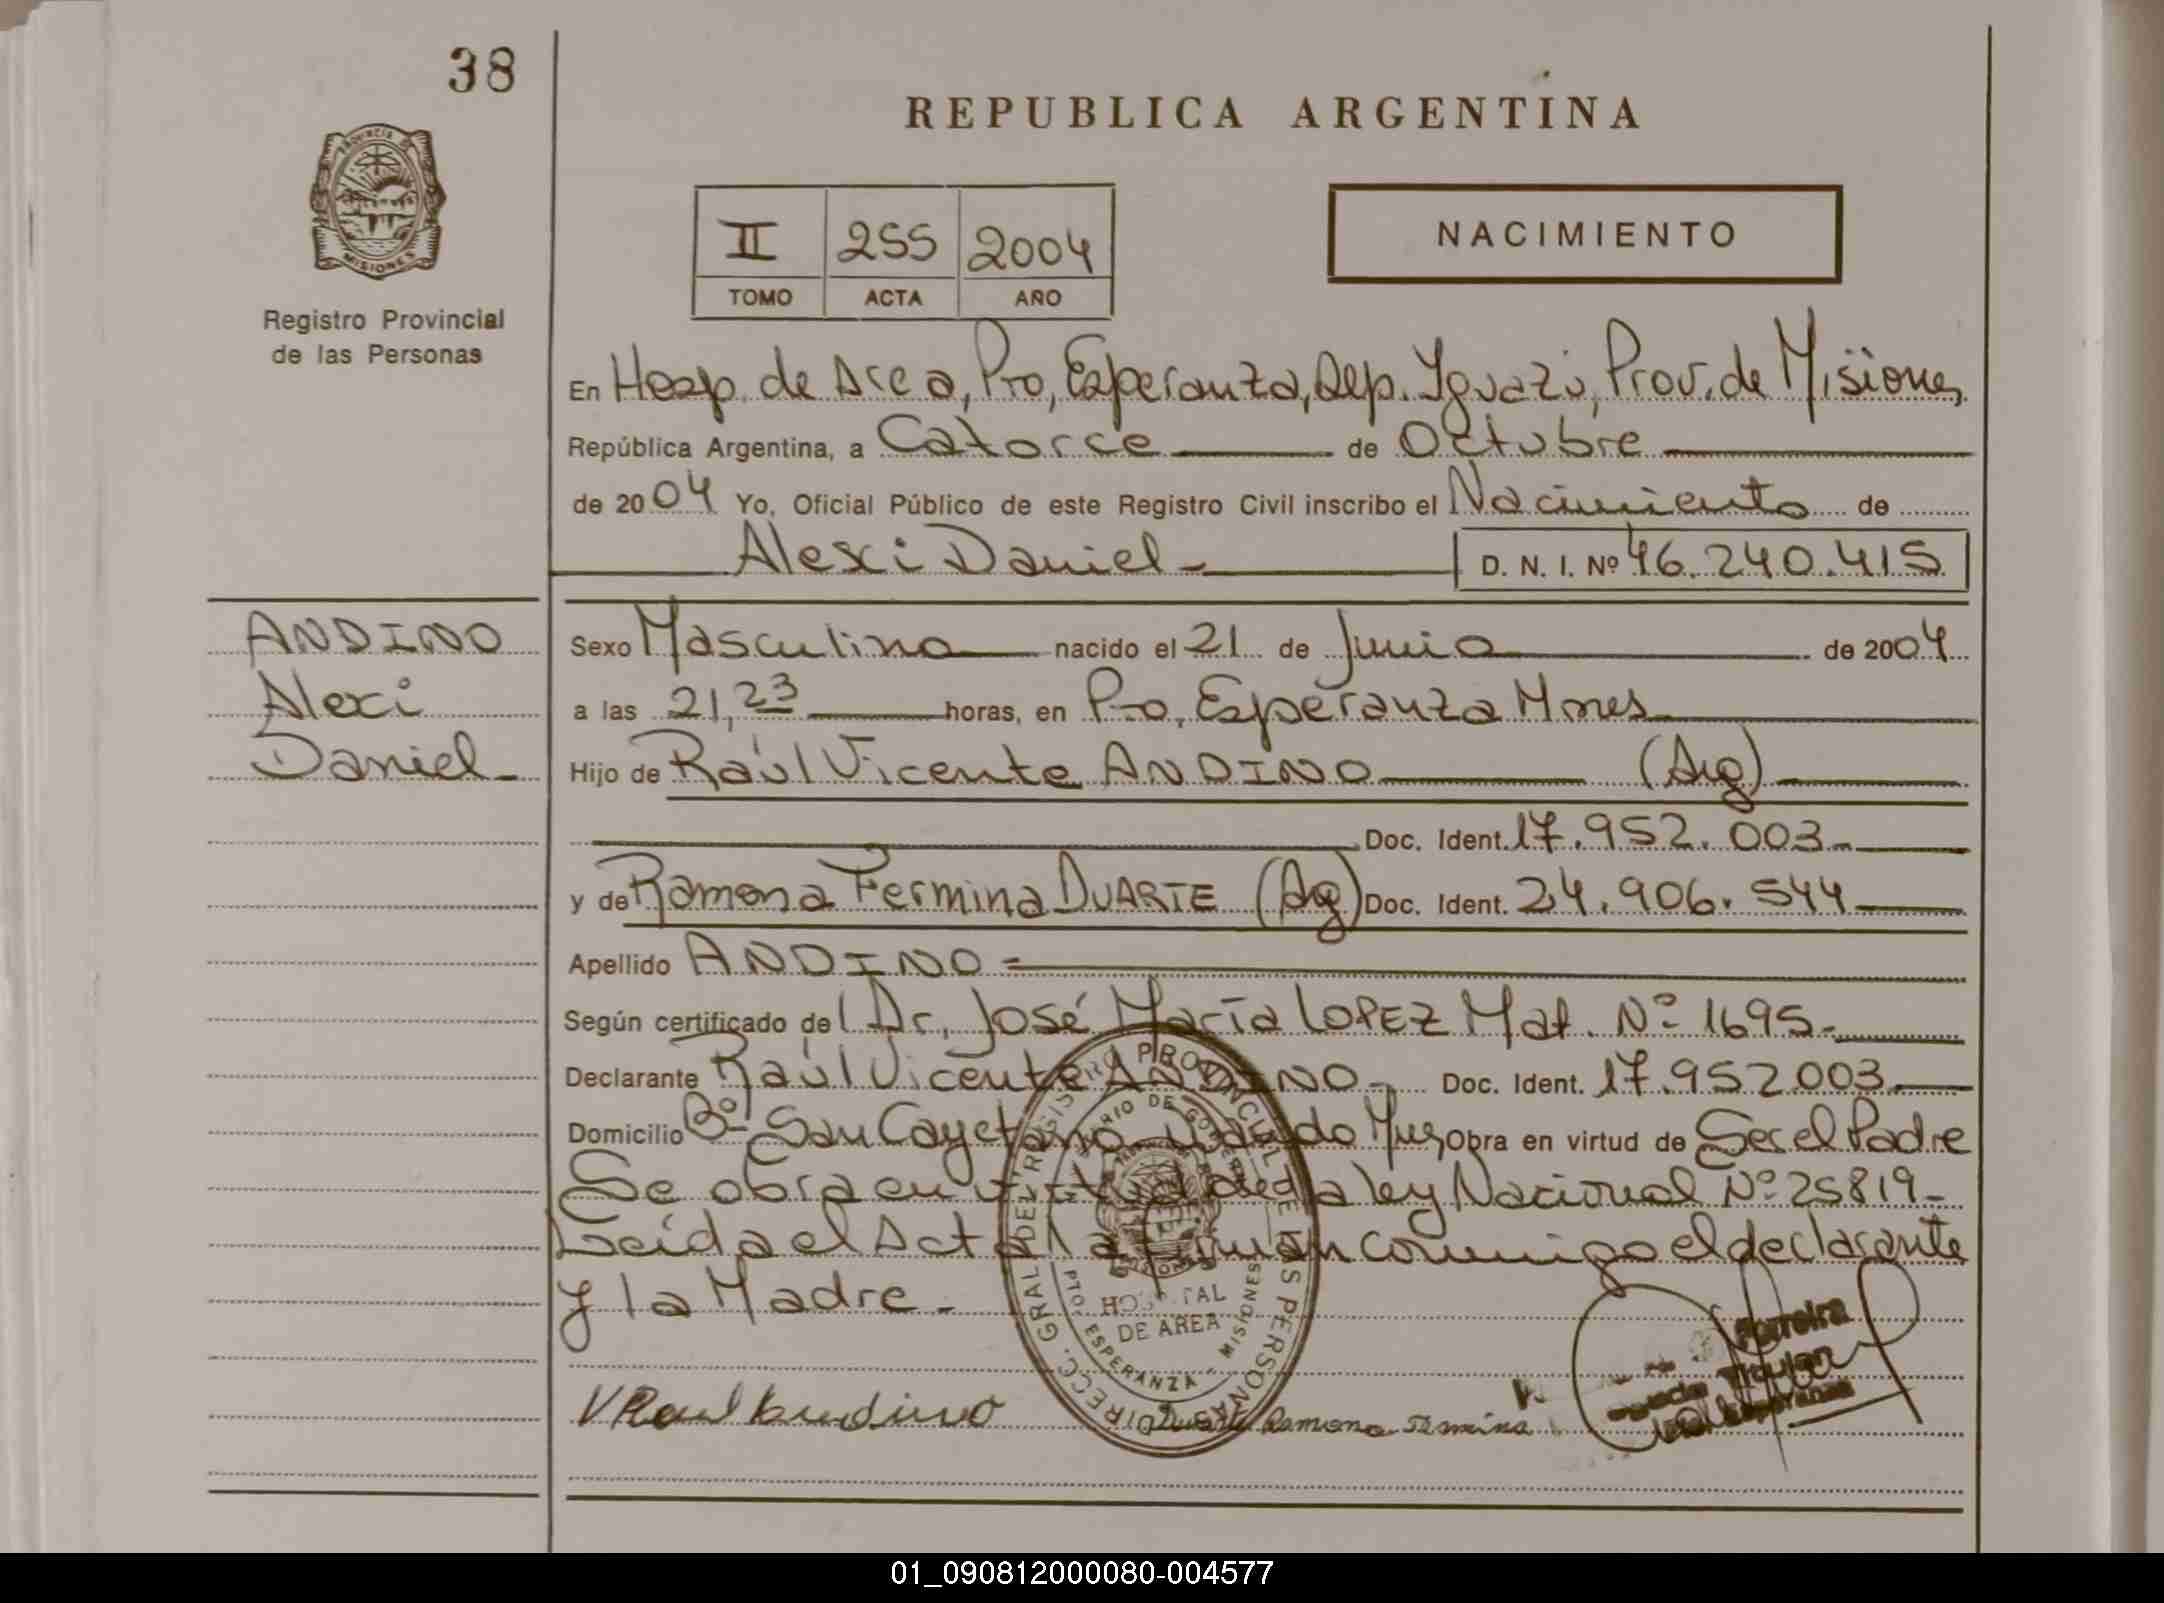 38
REPUBLICA ARGENTINA
PROVINCIA DE
MISIONES
Registro Provincial
de las Personas
II 255 2004
TOMO ACTA AÑO
NACIMIENTO
En Hosp. de Area, Pto, Esperanza, Dep. Iguazú, Prov. de Misiones
República Argentina, a Catorce de Octubre
de 2004 Yo, Oficial Público de este Registro Civil inscribo el Nacimiento de
Alexi Daniel - D. N. I. Nº 46.240.415
ANDINO
Alexi
Daniel -
Sexo Masculino nacido el 21 de Junio de 2004
a las 21,23 horas, en Pto, Esperanza Mnes
Hijo de Raúl Vicente ANDINO (Arg)
Doc. Ident. 17.952.003 -
y de Ramona Fermina DUARTE (Arg) Doc. Ident. 24.906.544
Apellido ANDINO -
Según certificado del Dr. José María LOPEZ Mat. Nº 1695 -
Declarante Raúl Vicente ANDINO - Doc. Ident. 17.952003
Domicilio Bº San Cayetano Obra en virtud de Ser el Padre
Se obra en virtud de la ley Nacional Nº 25819 -
Leída el Acta la firman conmigo el declarante
y la Madre -
DIRECC. GRAL. DEL REGISTRO PROVINCIAL DE LAS PERSONAS
HOSPITAL
DE AREA
PTO. ESPERANZA - MISIONES
Raul Andino
Duarte Ramona Fermina
Ferreira
Titular
01_090812000080-004577